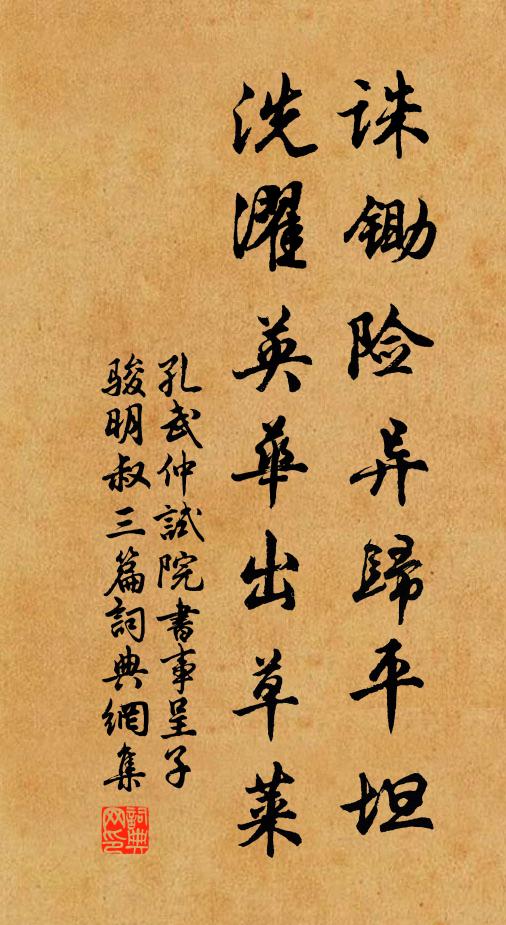 诛锄险异歸平坦
洗濯英華出草萊
孔武仲試院書事呈子
駿明叔三篇詞典網集
詞典网印